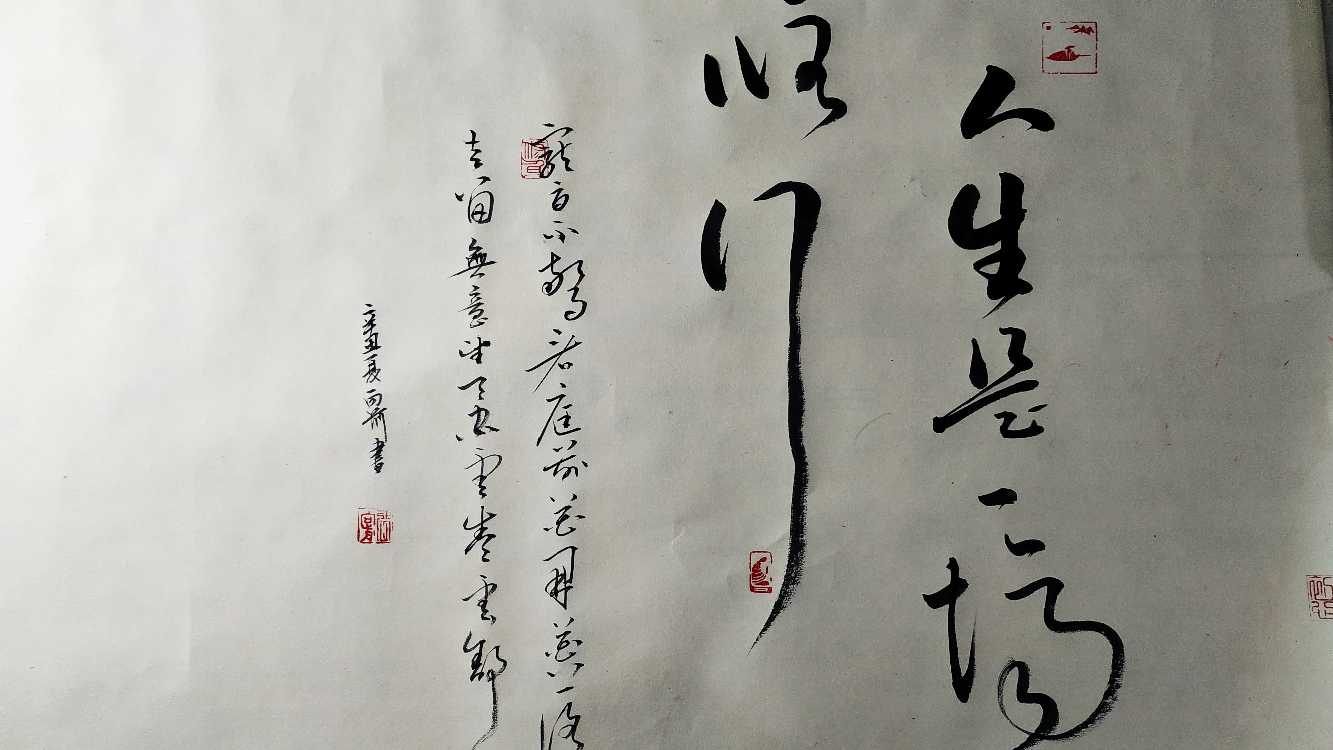 人生是一场
修行
寵辱不驚看庭前花開花落
去留無意望天空雲卷雲舒
辛丑夏 書